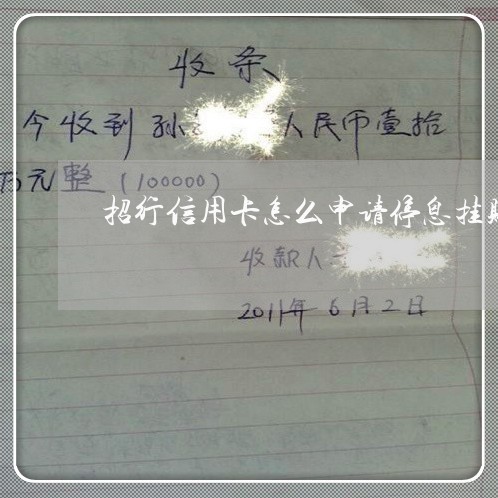 收条
今收到孙 人民币壹拾
万元整(100000)
招行信用卡怎么申请停息挂
收款人
2011年6月2日